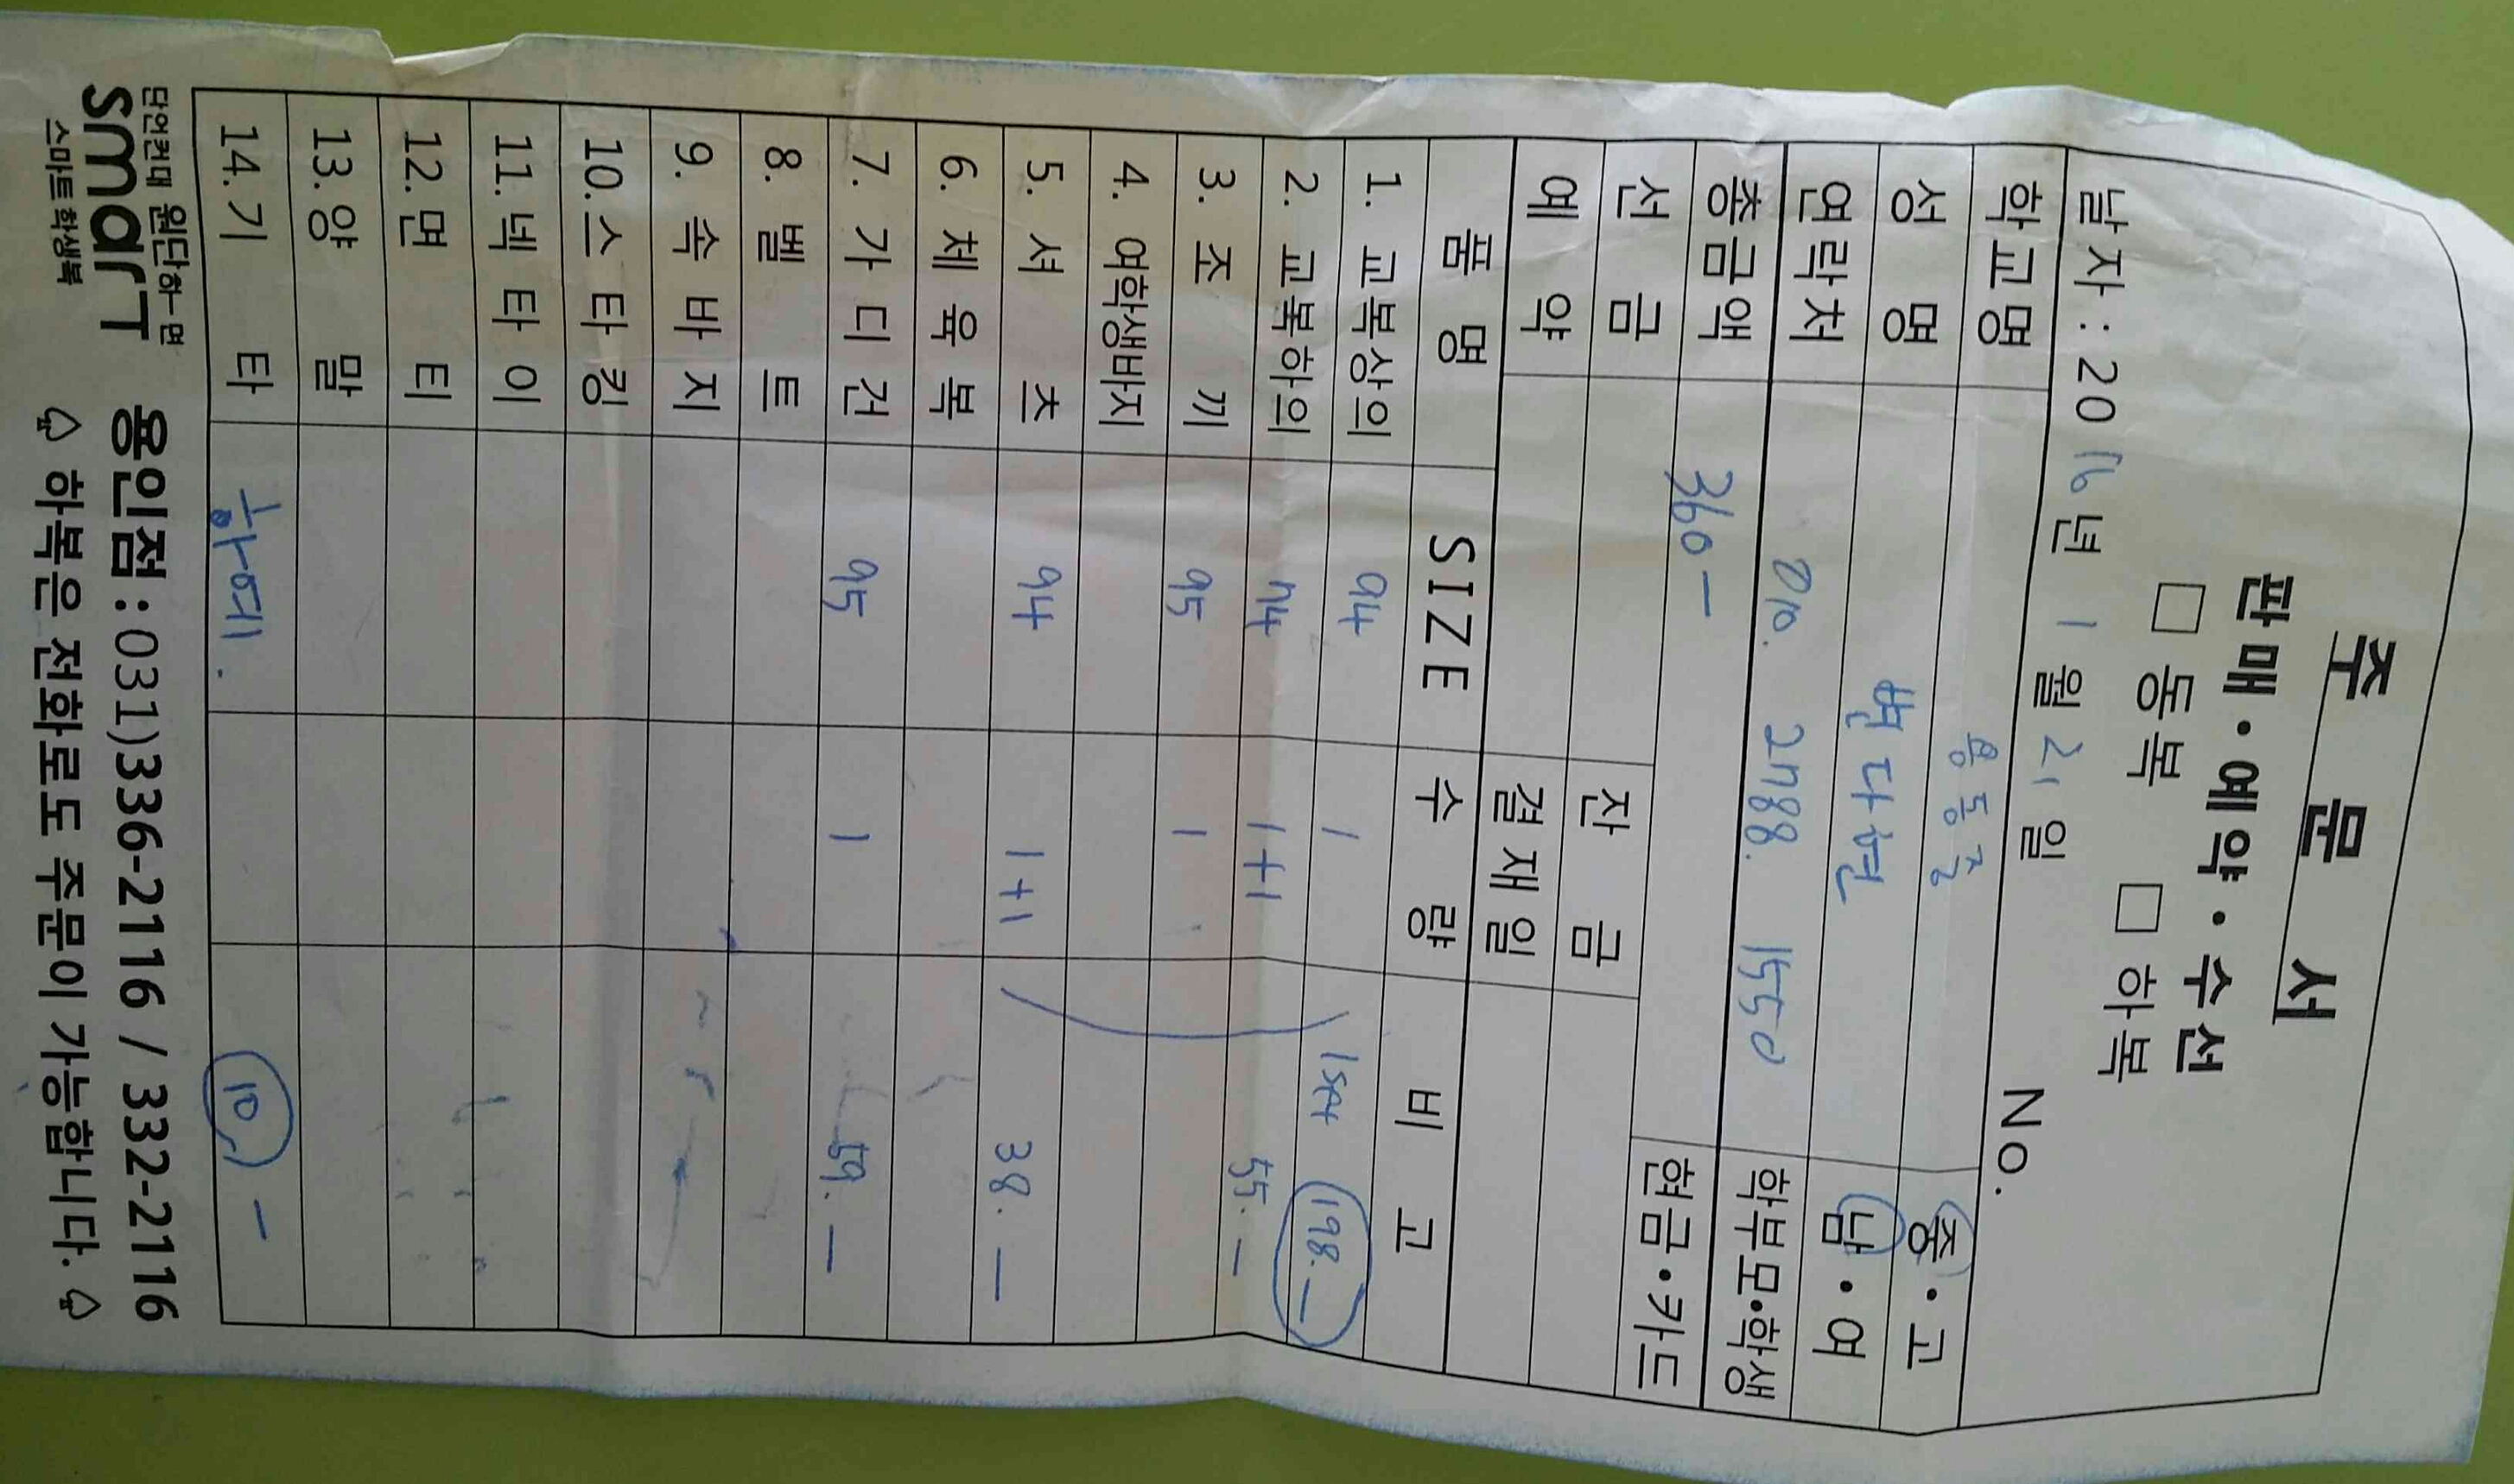 주 문 서
판매·예약·수선
□ 동복 □ 하복
날자 : 2016년 1월 21일 No.
학교명 용동중 중·고
성 명 변다현 남·여
연락처 010. 2788. 1550 학부모·학생
총금액 360 — 현금·카드
선 금 잔 금
예 약 결재일
품 명 SIZE 수 량 비 고
1. 교복상의 94 1 1set 198.—
2. 교복하의 74 1+1 55.—
3. 조 끼 95 1
4. 여학생바지
5. 셔 츠 94 1+1 38.—
6. 체 육 복
7. 가 디 건 95 1 59.—
8. 벨 트
9. 속 바 지
10.스 타 킹
11.넥 타 이
12.면 티
13.양 말
14.기 타 10.—
단언컨대 원단하-면
smarT
스마트 학생복
용인점 : 031)336-2116 / 332-2116
♤ 하복은 전화로도 주문이 가능합니다. ♤